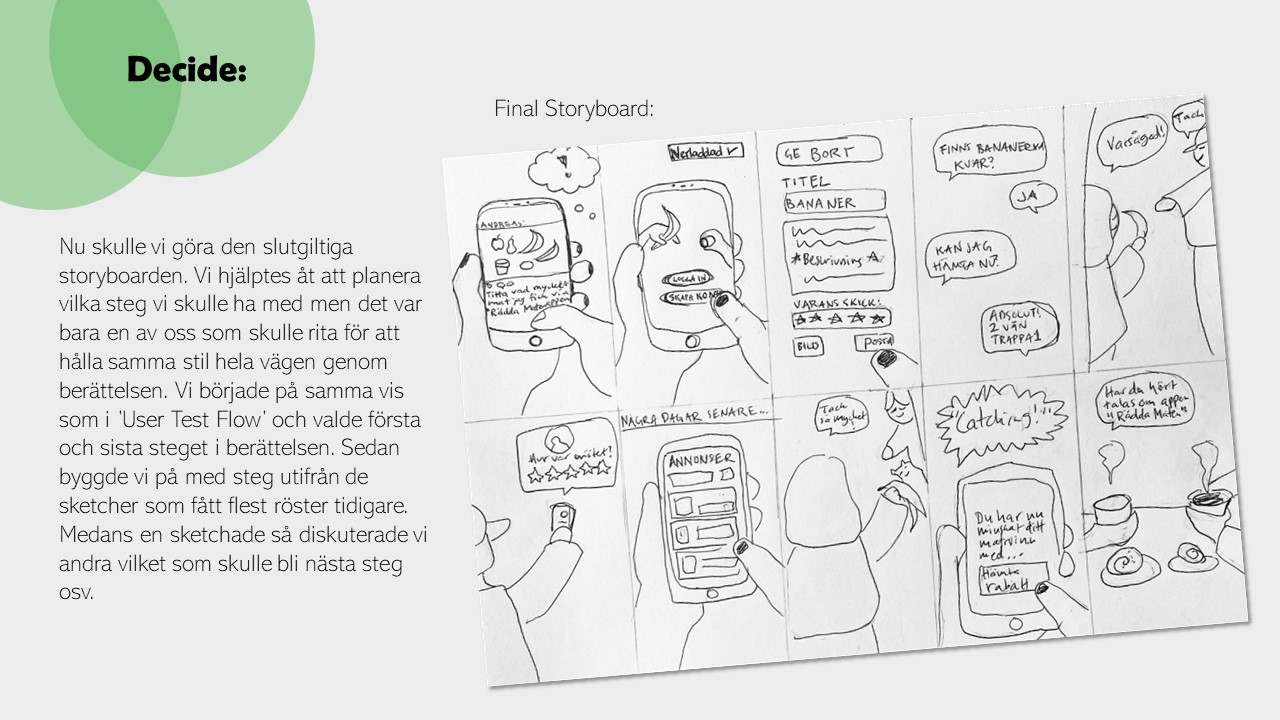 Decide:
Final Storyboard:
Nu skulle vi göra den slutgiltiga
storyboarden. Vi hjälptes åt att planera
vilka steg vi skulle ha med men det var
bara en av oss som skulle rita för att
hålla samma stil hela vägen genom
berättelsen. Vi började på samma vis
som i 'User Test Flow' och valde första
och sista steget i berättelsen. Sedan
byggde vi på med steg utifrån de
sketcher som fått flest röster tidigare.
Medans en sketchade så diskuterade vi
andra vilket som skulle bli nästa steg
osv.
!
ANDREAS:
Titta vad mycket
mat jag fick via
"Rädda Maten appen
Nerladdad ✓
LOGGA IN
SKAPA KON
GE BORT
TITEL
BANANER
*Beskrivning
VARANS SKICK:
BILD
POSTA
FINNS BANANERNA
KVAR?
JA
KAN JAG
HÄMTA NU?
ABSOLUT!
2 VÅN
TRAPPA 1
Varsågod!
Tack
Hur var mötet?
NÅGRA DAGAR SENARE...
ANNONSER
Tack
så mycket!
"Catching!"
Du har nu
minskat ditt
matsvinn
med...
Hämta
rabatt
Har du hört
talas om appen
"Rädda Maten"